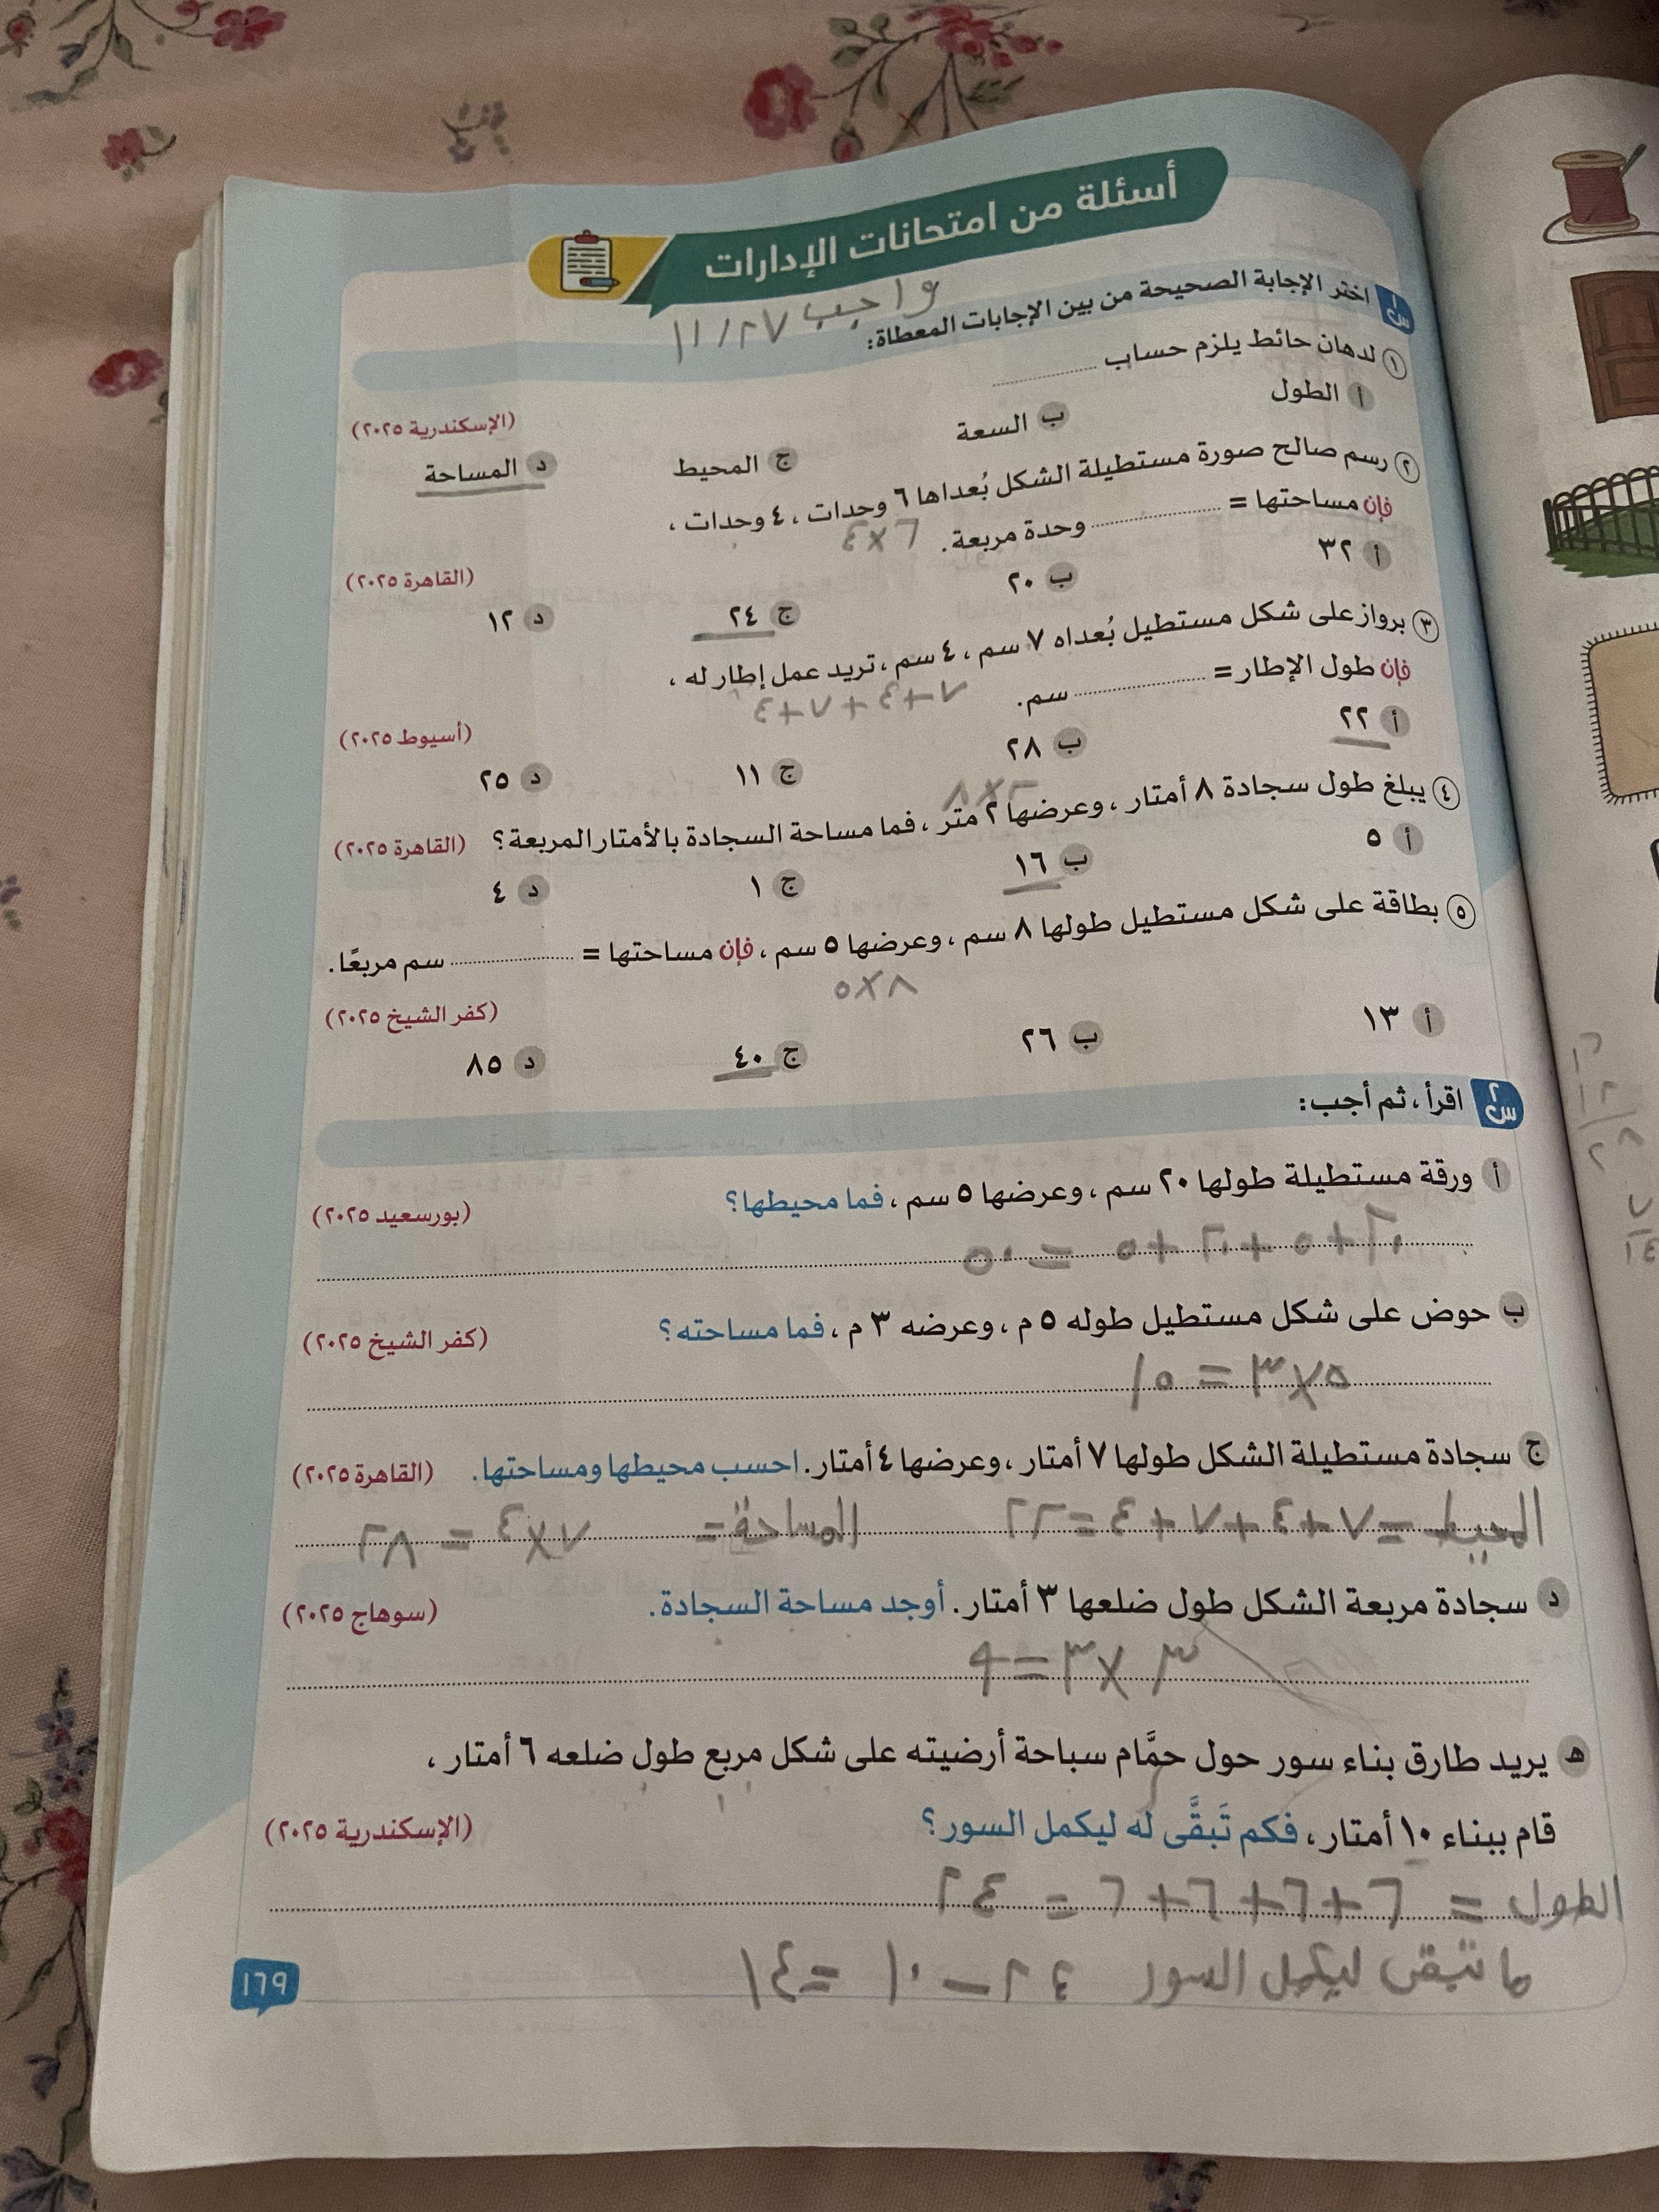 أسئلة من امتحانات الإدارات
واجب ١١/٢٧
س١ اختر الإجابة الصحيحة من بين الإجابات المعطاة:
١ لدهان حائط يلزم حساب ............
(الإسكندرية ٢٠٢٥)
أ الطول ب السعة ج المحيط د المساحة
٢ رسم صالح صورة مستطيلة الشكل بُعداها ٦ وحدات ، ٤ وحدات ،
فإن مساحتها = ............ وحدة مربعة.
٦×٤
(القاهرة ٢٠٢٥)
أ ٣٢ ب ٢٠ ج ٢٤ د ١٢
٣ برواز على شكل مستطيل بُعداه ٧ سم ، ٤ سم ، تريد عمل إطار له ،
فإن طول الإطار = ............ سم.
٧+٤+٧+٤
(أسيوط ٢٠٢٥)
أ ٢٢ ب ٢٨ ج ١١ د ٢٥
٨×٢
٤ يبلغ طول سجادة ٨ أمتار ، وعرضها ٢ متر ، فما مساحة السجادة بالأمتار المربعة؟ (القاهرة ٢٠٢٥)
أ ٥ ب ١٦ ج ١ د ٤
٥ بطاقة على شكل مستطيل طولها ٨ سم ، وعرضها ٥ سم ، فإن مساحتها = ............ سم مربعًا.
٨×٥
(كفر الشيخ ٢٠٢٥)
أ ١٣ ب ٢٦ ج ٤٠ د ٨٥
س٢ اقرأ ، ثم أجب:
أ ورقة مستطيلة طولها ٢٠ سم ، وعرضها ٥ سم ، فما محيطها؟ (بورسعيد ٢٠٢٥)
٢٠+٥+٢٠+٥ = ٥٠
ب حوض على شكل مستطيل طوله ٥ م ، وعرضه ٣ م ، فما مساحته؟ (كفر الشيخ ٢٠٢٥)
٥×٣ = ١٥
ج سجادة مستطيلة الشكل طولها ٧ أمتار ، وعرضها ٤ أمتار. احسب محيطها ومساحتها. (القاهرة ٢٠٢٥)
المحيط = ٧+٤+٧+٤ = ٢٢ المساحة = ٧×٤ = ٢٨
د سجادة مربعة الشكل طول ضلعها ٣ أمتار. أوجد مساحة السجادة. (سوهاج ٢٠٢٥)
٣×٣ = ٩
هـ يريد طارق بناء سور حول حمَّام سباحة أرضيته على شكل مربع طول ضلعه ٦ أمتار ،
قام ببناء ١٠ أمتار ، فكم تَبقَّى له ليكمل السور؟ (الإسكندرية ٢٠٢٥)
الطول = ٦+٦+٦+٦ = ٢٤
ما تبقى ليكمل السور ٢٤ - ١٠ = ١٤
١٦٩